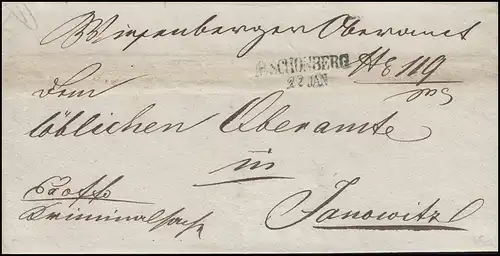 Wiesenberger Oberamt
M. SCHÖNBERG
22 JAN
No 119
Dem
löblichen Oberamte
in
Janowitz
Ex offo
Kriminalsache